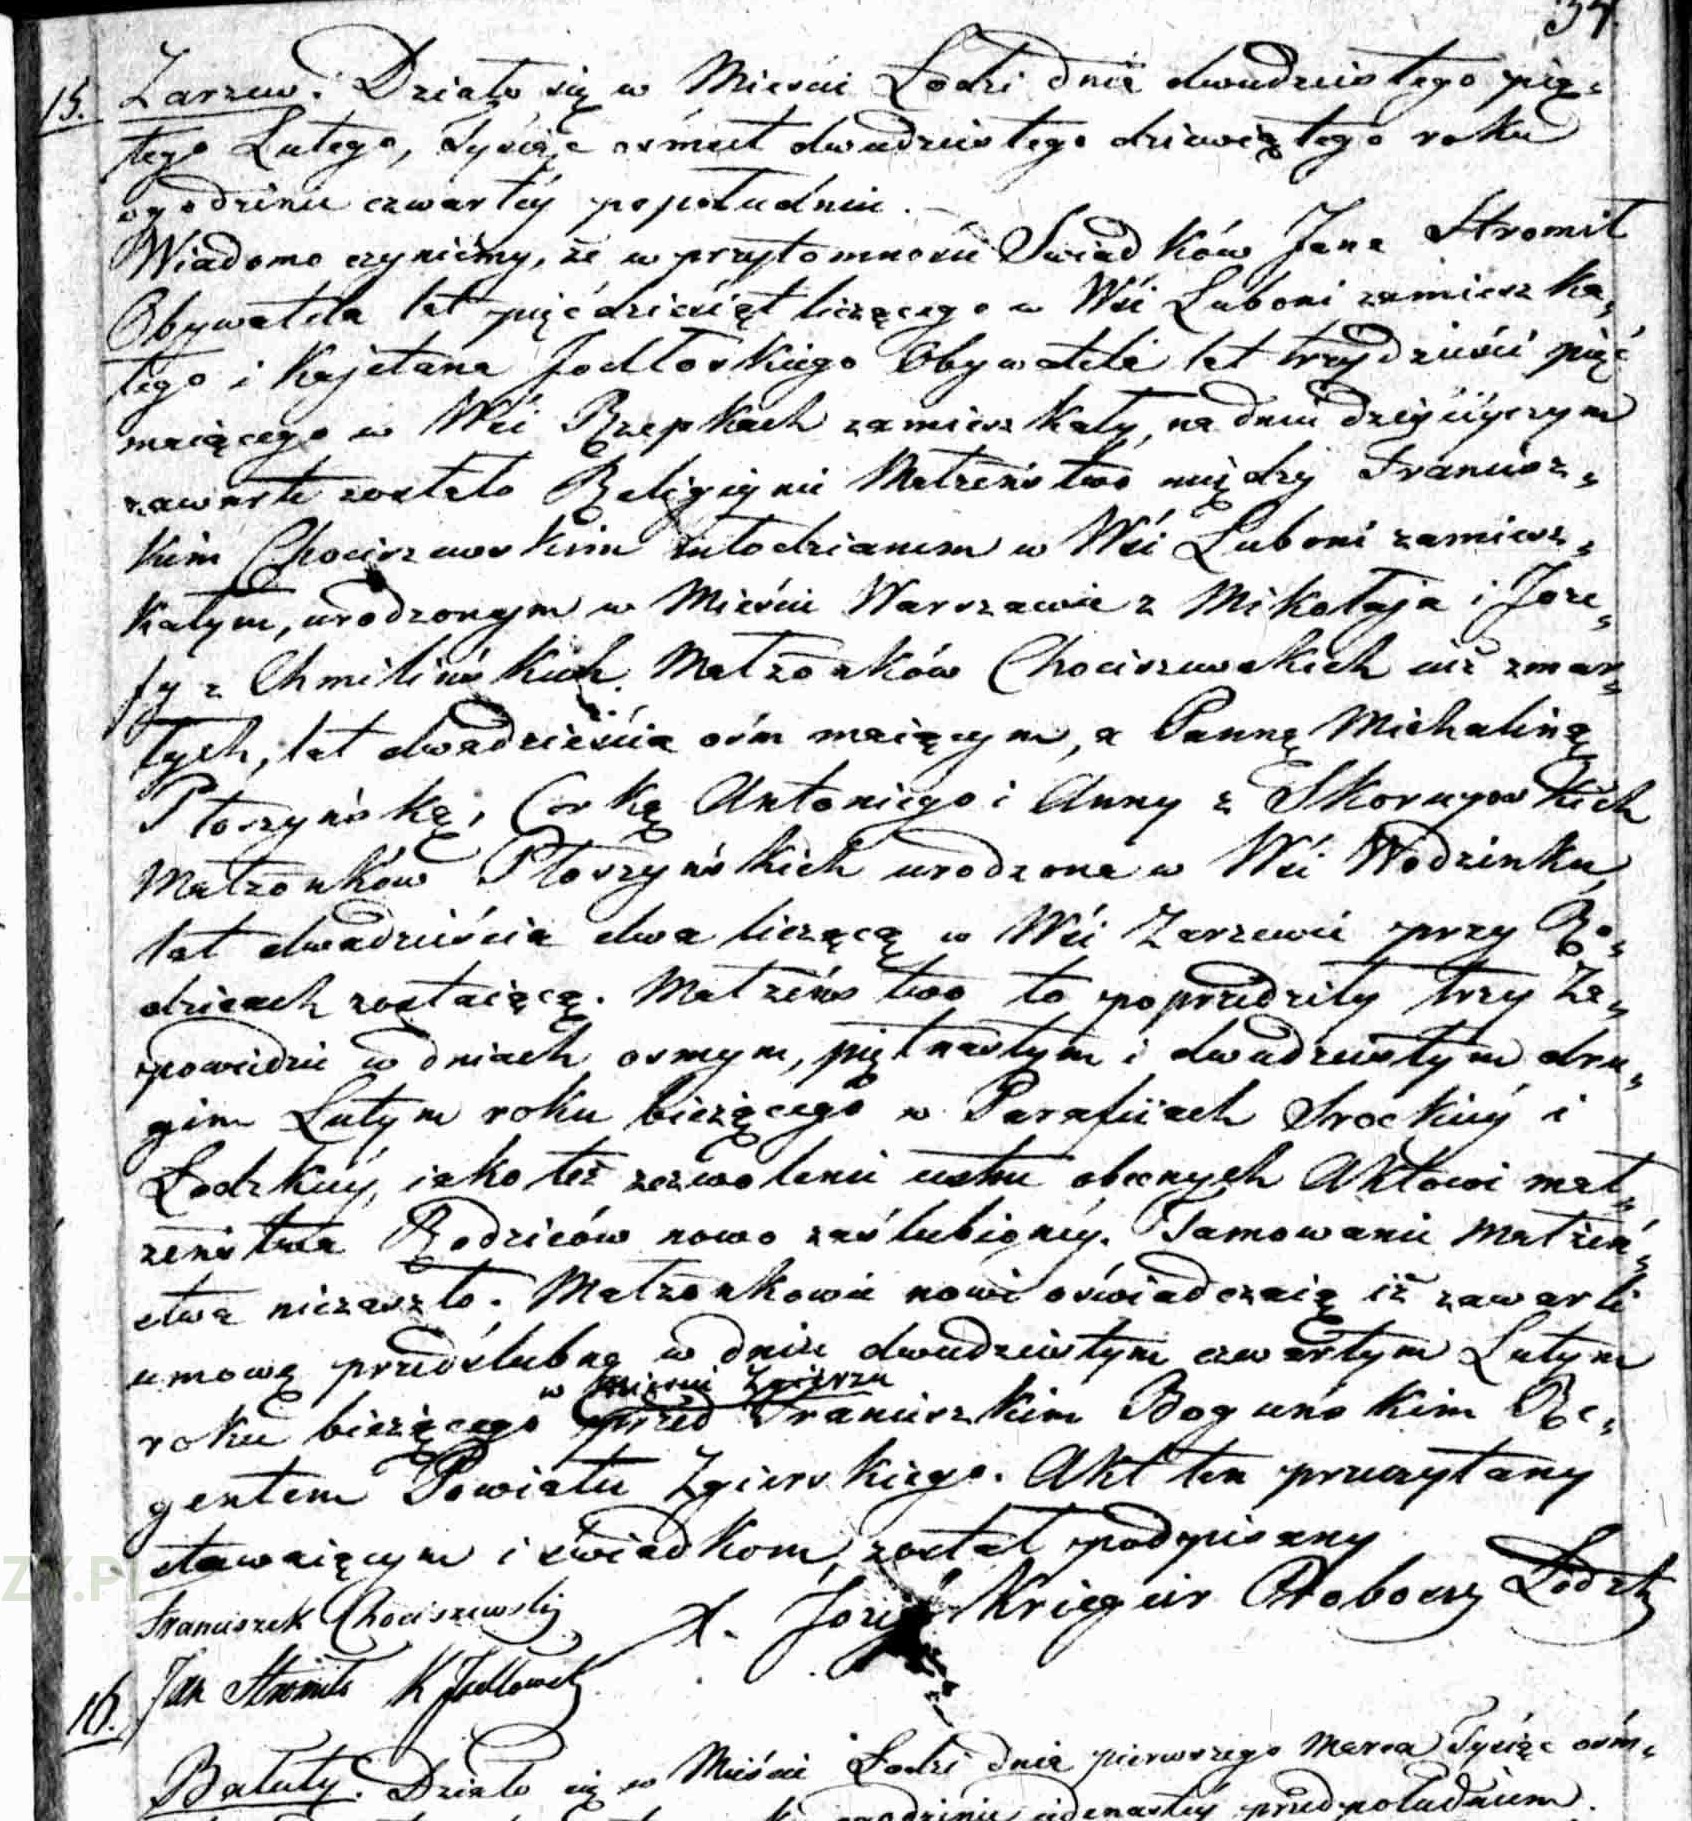 34.
15. Zarzew. Działo się w Mieście Łodzi dnia dwudziestego pią-
tego Lutego, Tysiąc ośmset dwudziestego dziewiątego roku
o godzinie czwartéy popołudniu. —
Wiadomo czyniemy, że w przytomności Swiadków Jana Stromilt
Obywatela lat pięćdziesiąt liczącego w Wsi Luboni zamieszka-
łego i Kajetana Jodłoskiego Obywatela lat trzydzieści pięć
maiącego w Wsi Rzepkach zamieszkały, na dniu dzisieyszym
zawarte zostało Religiyne Małżeństwo między Francisz-
kiem Chociszewskim młodzianem w Wsi Luboni zamiesz-
kałym, urodzonym w Mieście Warszawie z Mikołaja i Joze-
fy z Chmilińskich Małżonków Chociszewskich już zmar-
łych, lat dwadzieścia ośm maiącym, a Panną Michaliną
Płoszyńską, Corką Antoniego i Anny z Skorupowskich
Małżonków Płoszyńskich urodzona w Wsi Wodzinku,
lat dwadzieścia dwa liczącą w Wsi Zarzewie przy Ro-
dzicach zostaiącą. Małżeństwo to poprzedziły trzy Za-
powiedzie w dniach osmym, piętnastym i dwudziestym dru-
gim Lutym roku bieżącego w Parafiiach Srockiéy i
Łodzkiéy, iako też zezwolenie ustne obecnych Aktowi mał-
żeństwa Rodziców nowo zaślubionéy. Tamowanie Małżeń-
stwa niezaszło. Małżonkowie nowi oświadczaią iż zawarli
umowę przedślubną w dniu dwudziestym czwartym Lutym
w Mieście Zgierzu
roku bieżącego przed Franciszkiem Boguńskim Re-
gentem Powiatu Zgierskiego. Akt ten przeczytany
stawaiącym i świadkom, został podpisany
Franciszek Chociszewski X. Jozef Kriegeir Proboszcz Łodzki
Jan Stromilt K Jodłowski
16. Bałuty. Działo się w Mieście Łodzi dnia pierwszego Marca Tysiąc ośm-
godzinie iedenastéy przed południem.
ZY.PL